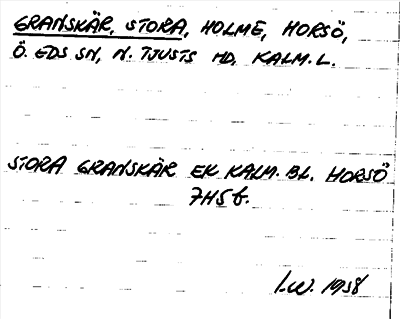 GRANSKÄR, STORA, HOLME, HORSÖ,
Ö. EDS SN, N. TJUSTS HD. KALM. L.
STORA GRANSKÄR EK KALM. BL. HORSÖ
7H5f.
I.W. 1958